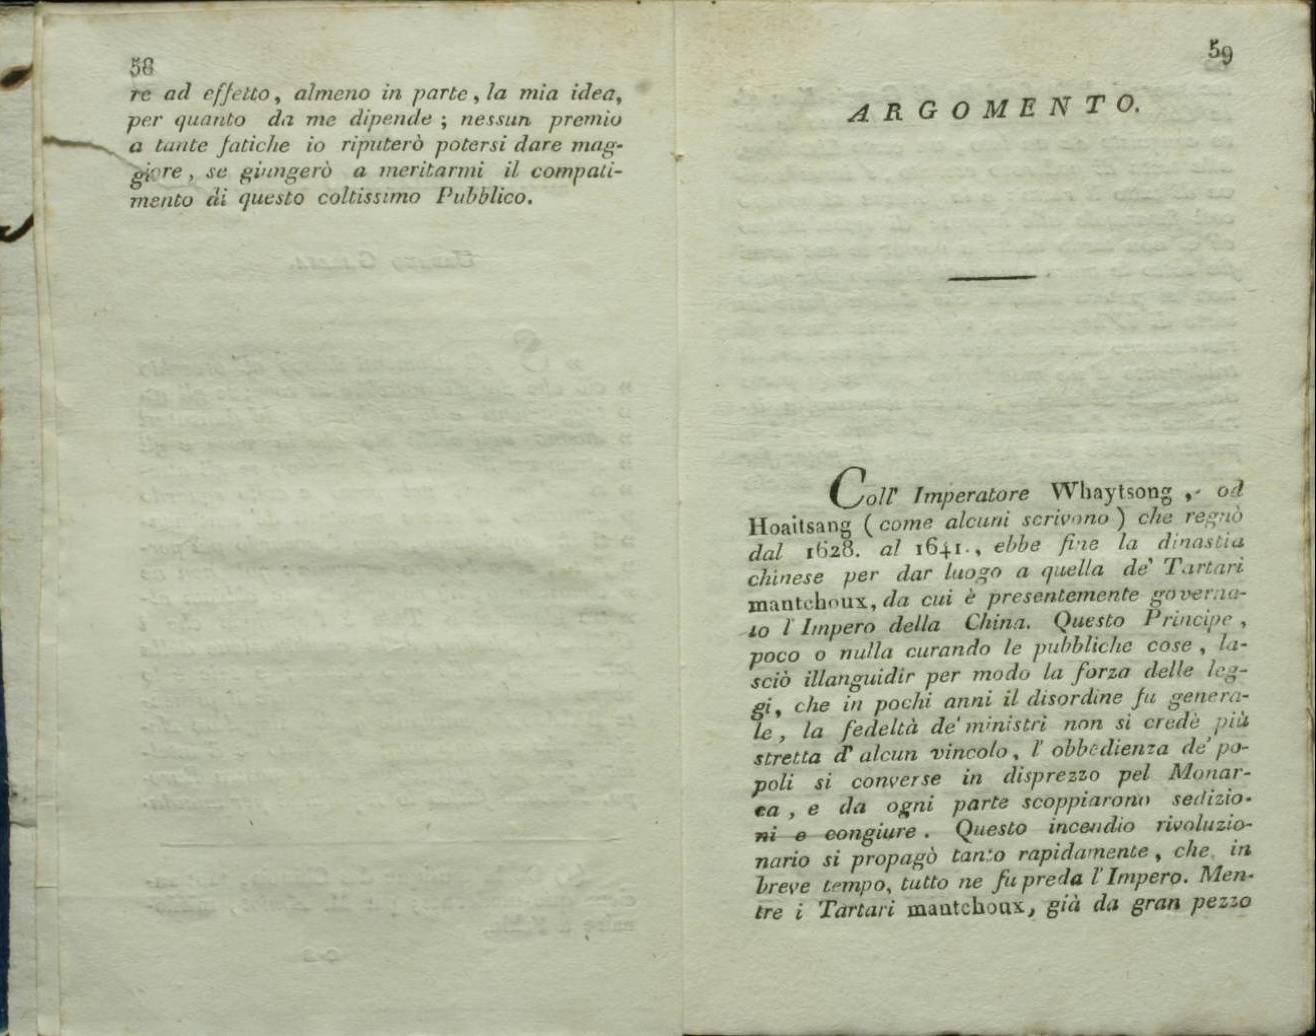 58
re ad effetto, almeno in parte, la mia idea,
per quanto da me dipende; nessun premio
a tante fatiche io riputerò potersi dare mag-
giore, se giungerò a meritarmi il compati-
mento di questo coltissimo Pubblico.
59
ARGOMENTO.
Coll' Imperatore Whaytsong, od
Hoaitsang (come alcuni scrivono) che regnò
dal 1628. al 1641., ebbe fine la dinastia
chinese per dar luogo a quella de' Tartari
mantchoux, da cui è presentemente governa-
to l'Impero della China. Questo Principe,
poco o nulla curando le pubbliche cose, la-
sciò illanguidir per modo la forza delle leg-
gi, che in pochi anni il disordine fu genera-
le, la fedeltà de' ministri non si credè più
stretta d' alcun vincolo, l' obbedienza de' po-
poli si converse in disprezzo pel Monar-
ca, e da ogni parte scoppiarono sedizio-
ni e congiure. Questo incendio rivoluzio-
nario si propagò tanto rapidamente, che in
breve tempo, tutto ne fu preda l'Impero. Men-
tre i Tartari mantchoux, già da gran pezzo